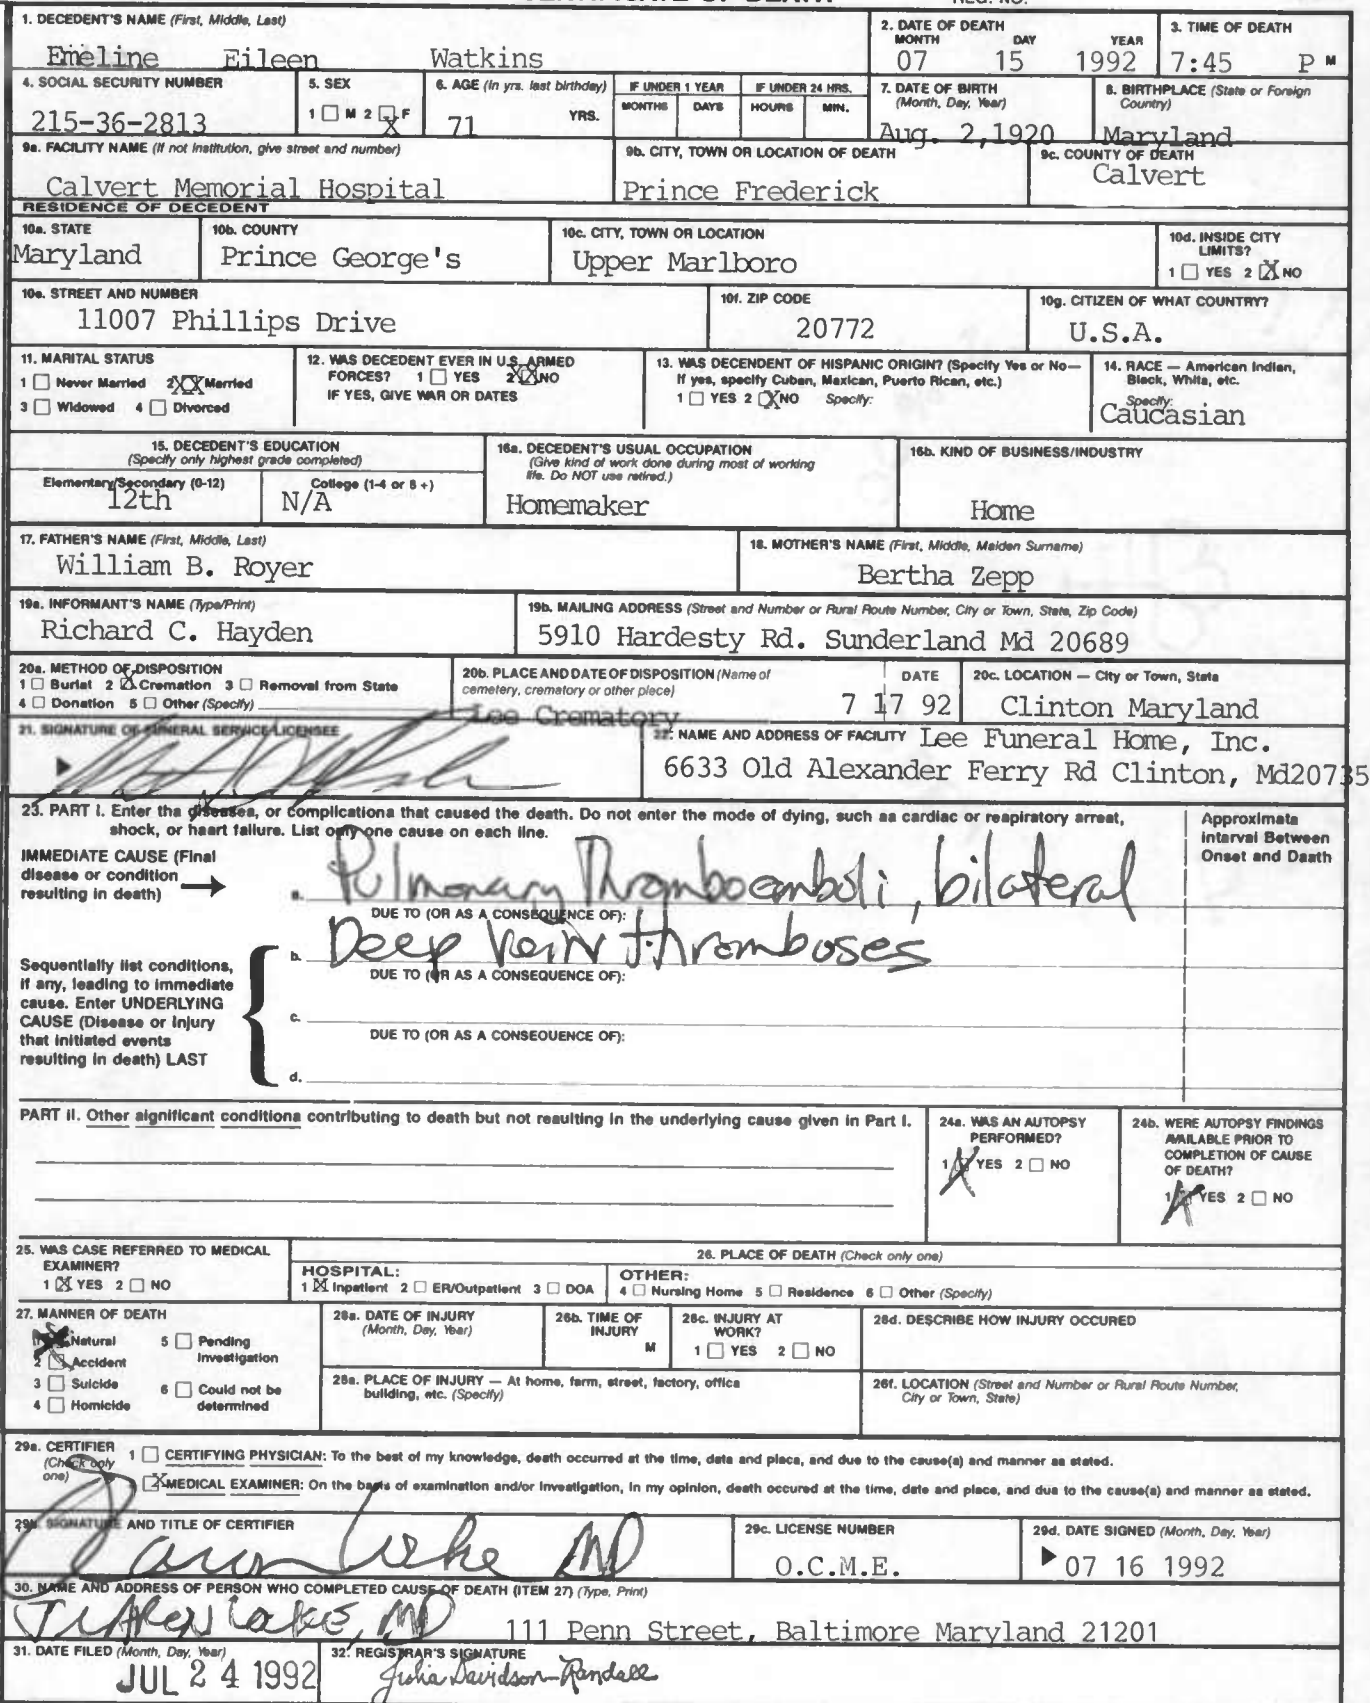 1. DECEDENT'S NAME (First, Middle, Last)
Emeline Eileen Watkins
2. DATE OF DEATH
MONTH DAY YEAR
07 15 1992
3. TIME OF DEATH
7:45 P M
4. SOCIAL SECURITY NUMBER
215-36-2813
5. SEX
1 M 2 X F
6. AGE (In yrs. last birthday)
71 YRS.
IF UNDER 1 YEAR
MONTHS DAYS
IF UNDER 24 HRS.
HOURS MIN.
7. DATE OF BIRTH
(Month, Day, Year)
Aug. 2,1920
8. BIRTHPLACE (State or Foreign
Country)
Maryland
9a. FACILITY NAME (If not institution, give street and number)
Calvert Memorial Hospital
9b. CITY, TOWN OR LOCATION OF DEATH
Prince Frederick
9c. COUNTY OF DEATH
Calvert
RESIDENCE OF DECEDENT
10a. STATE
Maryland
10b. COUNTY
Prince George's
10c. CITY, TOWN OR LOCATION
Upper Marlboro
10d. INSIDE CITY
LIMITS?
1 YES 2 X NO
10e. STREET AND NUMBER
11007 Phillips Drive
10f. ZIP CODE
20772
10g. CITIZEN OF WHAT COUNTRY?
U.S.A.
11. MARITAL STATUS
1 Never Married 2 XX Married
3 Widowed 4 Divorced
12. WAS DECEDENT EVER IN U.S. ARMED
FORCES? 1 YES 2 XX NO
IF YES, GIVE WAR OR DATES
13. WAS DECENDENT OF HISPANIC ORIGIN? (Specify Yes or No—
If yes, specify Cuban, Mexican, Puerto Rican, etc.)
1 YES 2 X NO Specify:
14. RACE — American Indian,
Black, White, etc.
Specify:
Caucasian
15. DECEDENT'S EDUCATION
(Specify only highest grade completed)
Elementary/Secondary (0-12) College (1-4 or 5 +)
12th N/A
16a. DECEDENT'S USUAL OCCUPATION
(Give kind of work done during most of working
life. Do NOT use retired.)
Homemaker
16b. KIND OF BUSINESS/INDUSTRY
Home
17. FATHER'S NAME (First, Middle, Last)
William B. Royer
18. MOTHER'S NAME (First, Middle, Maiden Surname)
Bertha Zepp
19a. INFORMANT'S NAME (Type/Print)
Richard C. Hayden
19b. MAILING ADDRESS (Street and Number or Rural Route Number, City or Town, State, Zip Code)
5910 Hardesty Rd. Sunderland Md 20689
20a. METHOD OF DISPOSITION
1 Burial 2 X Cremation 3 Removal from State
4 Donation 5 Other (Specify)
20b. PLACE AND DATE OF DISPOSITION (Name of
cemetery, crematory or other place)
Lee Crematory
DATE
7 17 92
20c. LOCATION — City or Town, State
Clinton Maryland
21. SIGNATURE OF FUNERAL SERVICE LICENSEE
22. NAME AND ADDRESS OF FACILITY Lee Funeral Home, Inc.
6633 Old Alexander Ferry Rd Clinton, Md20735
23. PART I. Enter the diseases, or complications that caused the death. Do not enter the mode of dying, such as cardiac or respiratory arrest,
shock, or heart failure. List only one cause on each line.
Approximate
Interval Between
Onset and Death
IMMEDIATE CAUSE (Final
disease or condition
resulting in death)
a. Pulmonary Thromboemboli, bilateral
DUE TO (OR AS A CONSEQUENCE OF):
b. Deep Vein thromboses
DUE TO (OR AS A CONSEQUENCE OF):
Sequentially list conditions,
if any, leading to immediate
cause. Enter UNDERLYING
CAUSE (Disease or injury
that initiated events
resulting in death) LAST
c.
DUE TO (OR AS A CONSEQUENCE OF):
d.
PART II. Other significant conditions contributing to death but not resulting in the underlying cause given in Part I.
24a. WAS AN AUTOPSY
PERFORMED?
1 X YES 2 NO
24b. WERE AUTOPSY FINDINGS
AVAILABLE PRIOR TO
COMPLETION OF CAUSE
OF DEATH?
1 X YES 2 NO
25. WAS CASE REFERRED TO MEDICAL
EXAMINER?
1 X YES 2 NO
26. PLACE OF DEATH (Check only one)
HOSPITAL:
1 X Inpatient 2 ER/Outpatient 3 DOA
OTHER:
4 Nursing Home 5 Residence 6 Other (Specify)
27. MANNER OF DEATH
1 Natural 5 Pending
Investigation
2 Accident
3 Suicide 6 Could not be
determined
4 Homicide
28a. DATE OF INJURY
(Month, Day, Year)
28b. TIME OF
INJURY
M
28c. INJURY AT
WORK?
1 YES 2 NO
28d. DESCRIBE HOW INJURY OCCURED
28e. PLACE OF INJURY — At home, farm, street, factory, office
building, etc. (Specify)
28f. LOCATION (Street and Number or Rural Route Number,
City or Town, State)
29a. CERTIFIER
(Check only
one)
1 CERTIFYING PHYSICIAN: To the best of my knowledge, death occurred at the time, date and place, and due to the cause(s) and manner as stated.
X MEDICAL EXAMINER: On the basis of examination and/or investigation, in my opinion, death occured at the time, date and place, and due to the cause(s) and manner as stated.
29b. SIGNATURE AND TITLE OF CERTIFIER
MD
29c. LICENSE NUMBER
O.C.M.E.
29d. DATE SIGNED (Month, Day, Year)
07 16 1992
30. NAME AND ADDRESS OF PERSON WHO COMPLETED CAUSE OF DEATH (ITEM 27) (Type, Print)
MD 111 Penn Street, Baltimore Maryland 21201
31. DATE FILED (Month, Day, Year)
JUL 24 1992
32. REGISTRAR'S SIGNATURE
Julia Davidson-Randall